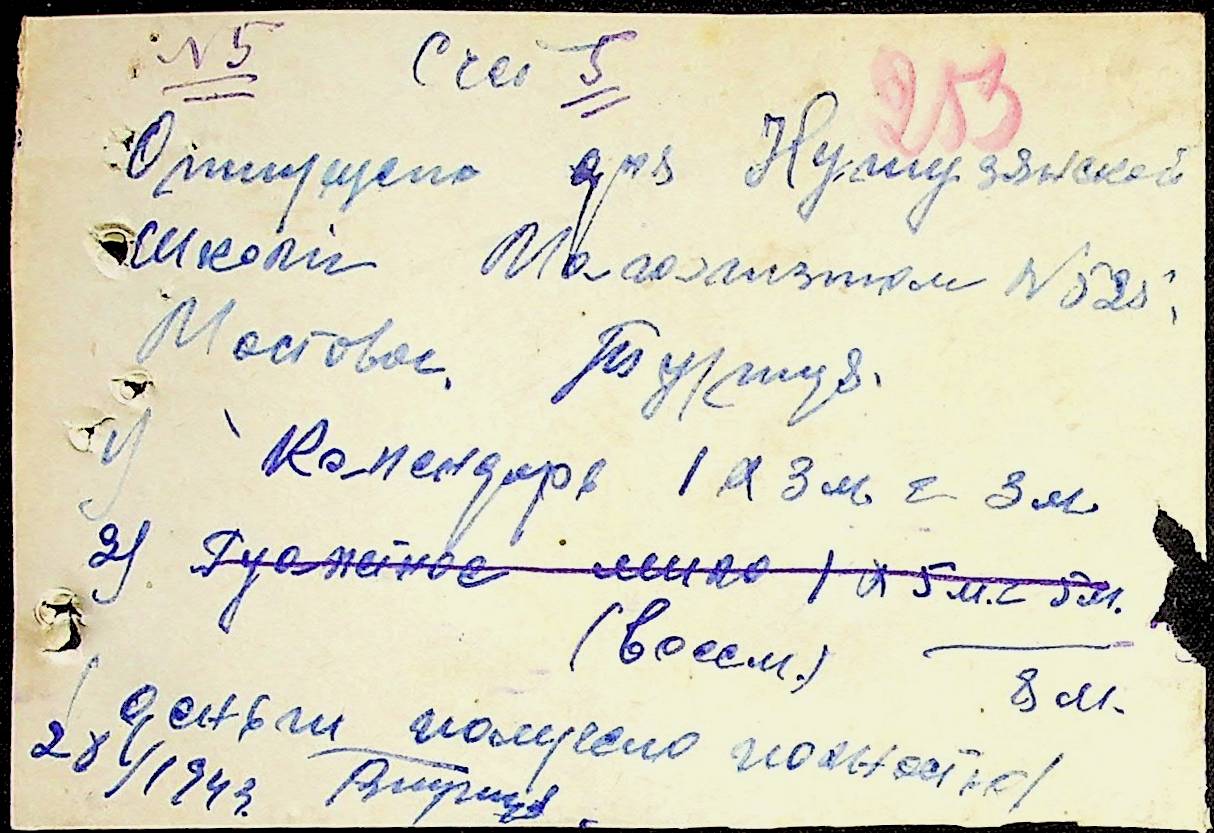 №5 Счет 5
253
Отпущено для Нутузянской
школы Магазином №525
Мостовое,
1) Календарь 1 х 3м = 3м
2) мыло 1 х 5м. = 5м.
(восем.) 8м.
деньги получено полностью
28/ 1943.